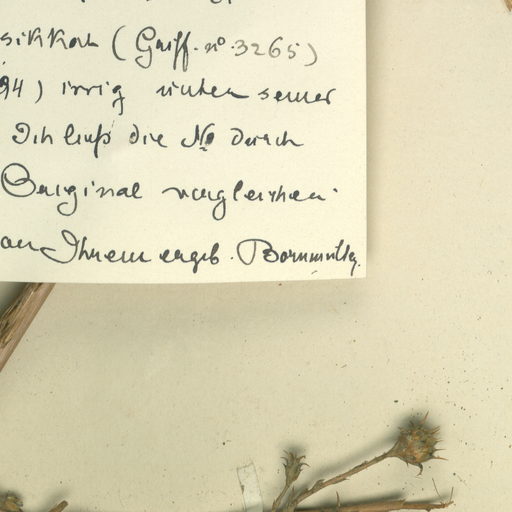 sikkah (Griff. nº 3265)
94) irrig unter seiner
Ich ließ die No durch
Original vergleichen.
an Ihrem ergb. Bornmüller